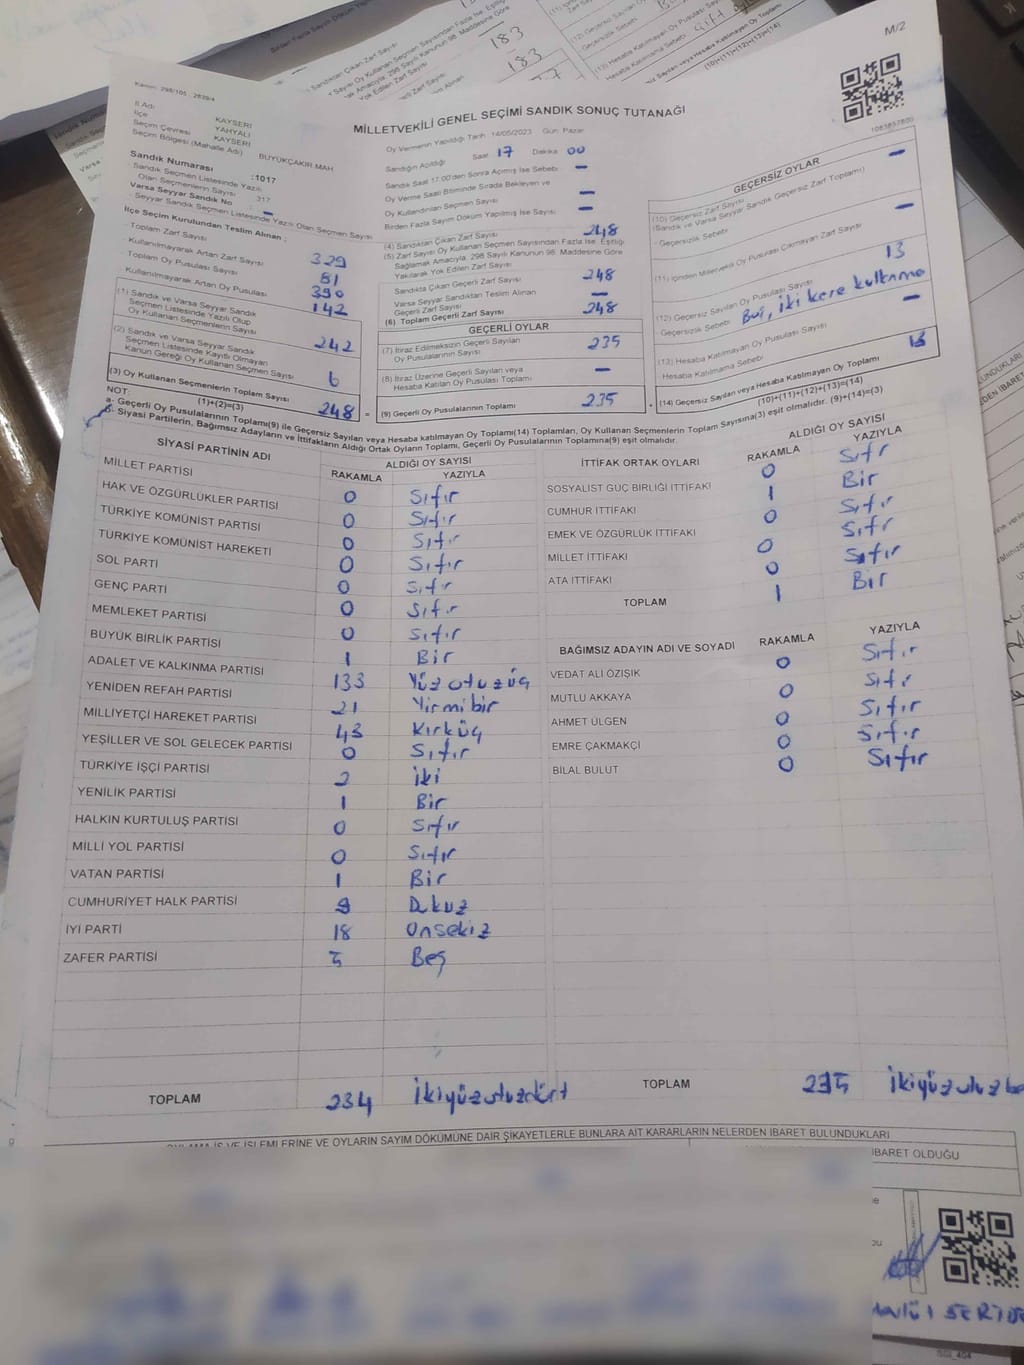 M/2
183
183
Kanun: 298/105 : 2839/4
MİLLETVEKİLİ GENEL SEÇİMİ SANDIK SONUÇ TUTANAĞI
1083857800
İl Adı KAYSERİ
İlçe YAHYALI
Seçim Çevresi KAYSERİ
Seçim Bölgesi (Mahalle Adı) BÜYÜKÇAKIR MAH
Sandık Numarası :1017
- Sandık Seçmen Listesinde Yazılı
Olan Seçmenlerin Sayısı 317
Varsa Seyyar Sandık No : –
- Seyyar Sandık Seçmen Listesinde Yazılı Olan Seçmen Sayısı
İlçe Seçim Kurulundan Teslim Alınan ;
- Toplam Zarf Sayısı 329
Kullanılmayarak Artan Zarf Sayısı 81
Toplam Oy Pusulası Sayısı 390
Kullanılmayarak Artan Oy Pusulası 142
(1) Sandık ve Varsa Seyyar Sandık
Seçmen Listesinde Yazılı Olup
Oy Kullanan Seçmenlerin Sayısı 242
(2) Sandık ve Varsa Seyyar Sandık
Seçmen Listesinde Kayıtlı Olmayan
Kanun Gereği Oy Kullanan Seçmen Sayısı 6
(3) Oy Kullanan Seçmenlerin Toplam Sayısı
(1)+(2)=(3) 248 =
Oy Vermenin Yapıldığı Tarih 14/05/2023 Gün Pazar
Sandığın Açıldığı Saat 17 Dakika 00
Sandık Saat 17.00'den Sonra Açılmış İse Sebebi –
Oy Verme Saati Bitiminde Sırada Bekleyen ve
Oy Kullandırılan Seçmen Sayısı –
Birden Fazla Sayım Döküm Yapılmış İse Sayısı –
(4) Sandıktan Çıkan Zarf Sayısı 248
(5) Zarf Sayısı Oy Kullanan Seçmen Sayısından Fazla İse, Eşitliği
Sağlamak Amacıyla; 298 Sayılı Kanunun 98. Maddesine Göre
Yakılarak Yok Edilen Zarf Sayısı
Sandıkta Çıkan Geçerli Zarf Sayısı 248
Varsa Seyyar Sandıktan Teslim Alınan
Geçerli Zarf Sayısı –
(6) Toplam Geçerli Zarf Sayısı 248
GEÇERLİ OYLAR
(7) İtiraz Edilmeksizin Geçerli Sayılan
Oy Pusulalarının Sayısı 235
(8) İtiraz Üzerine Geçerli Sayılan veya
Hesaba Katılan Oy Pusulası Toplamı –
(9) Geçerli Oy Pusulalarının Toplamı 235 +
GEÇERSİZ OYLAR
(10) Geçersiz Zarf Sayısı –
(Sandık ve Varsa Seyyar Sandık Geçersiz Zarf Toplamı)
- Geçersizlik Sebebi
(11) İçinden Milletvekili Oy Pusulası Çıkmayan Zarf Sayısı –
(12) Geçersiz Sayılan Oy Pusulası Sayısı 13
- Geçersizlik Sebebi Boş, iki kere kullanma
(13) Hesaba Katılmayan Oy Pusulası Sayısı –
- Hesaba Katılmama Sebebi
(14) Geçersiz Sayılan veya Hesaba Katılmayan Oy Toplamı 13
(10)+(11)+(12)+(13)=(14)
NOT:
a- Geçerli Oy Pusulalarının Toplamı(9) ile Geçersiz Sayılan veya Hesaba katılmayan Oy Toplamı(14) Toplamları, Oy Kullanan Seçmenlerin Toplam Sayısına(3) eşit olmalıdır. (9)+(14)=(3)
b- Siyasi Partilerin, Bağımsız Adayların ve İttifakların Aldığı Ortak Oyların Toplamı, Geçerli Oy Pusulalarının Toplamına(9) eşit olmalıdır.
SİYASİ PARTİNİN ADI ALDIĞI OY SAYISI
RAKAMLA YAZIYLA
MİLLET PARTİSİ 0 Sıfır
HAK VE ÖZGÜRLÜKLER PARTİSİ 0 Sıfır
TÜRKİYE KOMÜNİST PARTİSİ 0 Sıfır
TÜRKİYE KOMÜNİST HAREKETİ 0 Sıfır
SOL PARTİ 0 Sıfır
GENÇ PARTİ 0 Sıfır
MEMLEKET PARTİSİ 0 Sıfır
BÜYÜK BİRLİK PARTİSİ 1 Bir
ADALET VE KALKINMA PARTİSİ 133 Yüz otuzüç
YENİDEN REFAH PARTİSİ 21 Yirmibir
MİLLİYETÇİ HAREKET PARTİSİ 43 Kırküç
YEŞİLLER VE SOL GELECEK PARTİSİ 0 Sıfır
TÜRKİYE İŞÇİ PARTİSİ 2 iki
YENİLİK PARTİSİ 1 Bir
HALKIN KURTULUŞ PARTİSİ 0 Sıfır
MİLLİ YOL PARTİSİ 0 Sıfır
VATAN PARTİSİ 1 Bir
CUMHURİYET HALK PARTİSİ 9 Dokuz
İYİ PARTİ 18 Onsekiz
ZAFER PARTİSİ 5 Beş
TOPLAM 234 İkiyüzotuzdört
İTTİFAK ORTAK OYLARI ALDIĞI OY SAYISI
RAKAMLA YAZIYLA
SOSYALİST GÜÇ BİRLİĞİ İTTİFAKI 0 Sıfır
CUMHUR İTTİFAKI 1 Bir
EMEK VE ÖZGÜRLÜK İTTİFAKI 0 Sıfır
MİLLET İTTİFAKI 0 Sıfır
ATA İTTİFAKI 0 Sıfır
TOPLAM 1 Bir
BAĞIMSIZ ADAYIN ADI VE SOYADI RAKAMLA YAZIYLA
VEDAT ALİ ÖZIŞIK 0 Sıfır
MUTLU AKKAYA 0 Sıfır
AHMET ÜLGEN 0 Sıfır
EMRE ÇAKMAKÇİ 0 Sıfır
BİLAL BULUT 0 Sıfır
TOPLAM 235 ikiyüzotuzbe
OYLAMA İŞ VE İŞLEMLERİNE VE OYLARIN SAYIM DÖKÜMÜNE DAİR ŞİKAYETLERLE BUNLARA AİT KARARLARIN NELERDEN İBARET BULUNDUKLARI
İBARET OLDUĞU